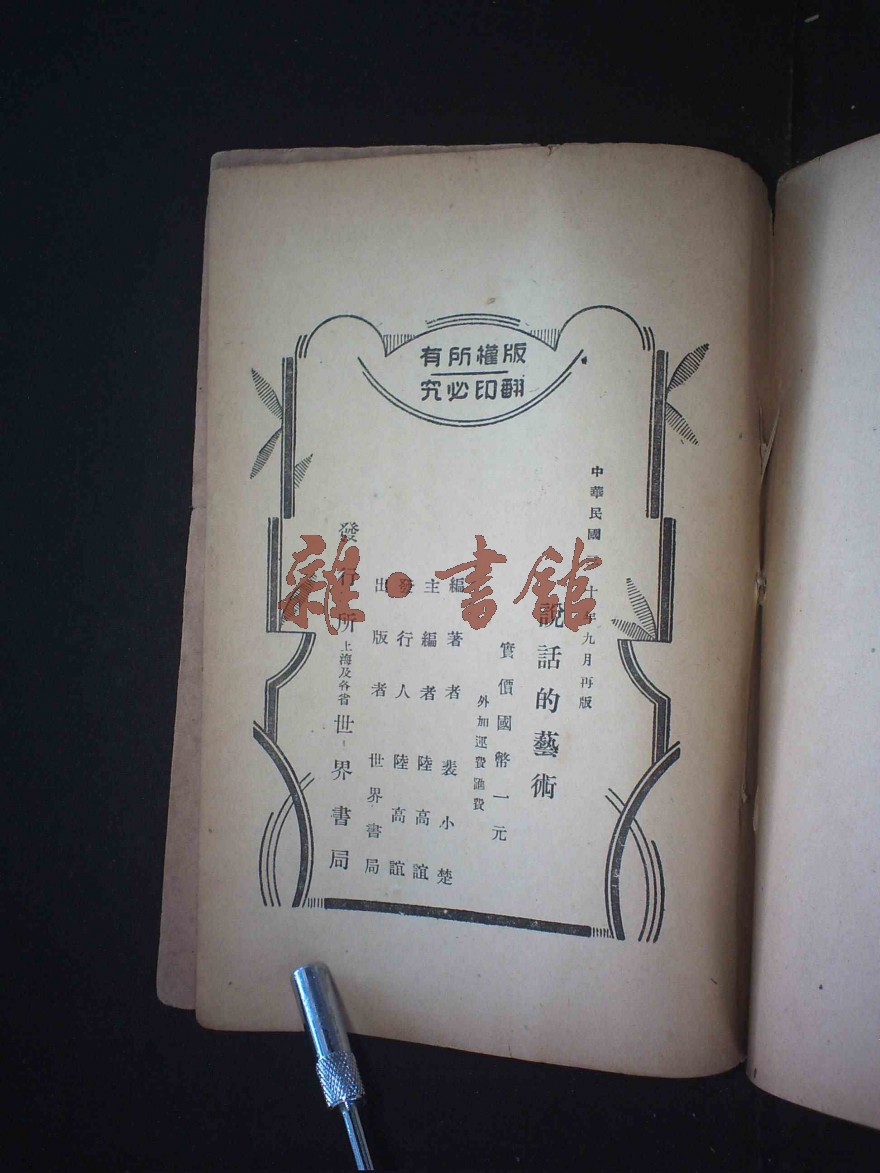 版權所有
翻印必究
中華民國 十年九月再版
說話的藝術
實價國幣一元
外加運費匯費
編著者 裴小楚
主編者 陸高誼
發行人 陸高誼
出版者 世界書局
發行所 上海及各省 世界書局
雜·書館